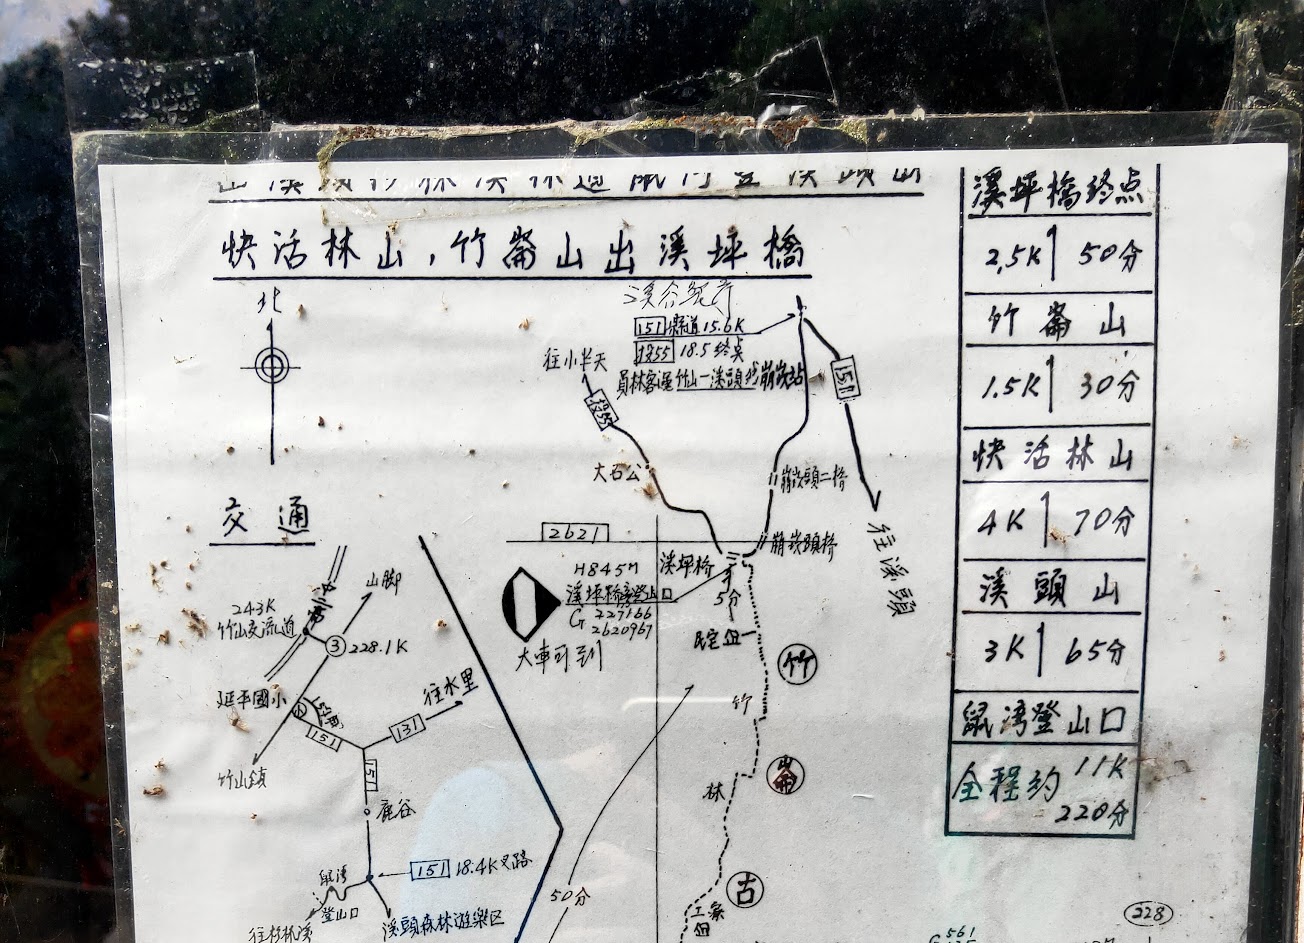 快活林山,竹崙山出溪坪橋
北
151 縣道15.6K
投55 18.5終点
員林客運竹山一溪頭線崩崁站
往小半天
投55
151
大石公
崩崁頭二橋
崩崁頭橋
往溪頭
2621
溪坪橋
H845M
溪坪橋登山口
G 227166
2620967
大車可到
5分
民宅
竹
竹
崙
林
古
工寮
50分
228
561
交通
243K
竹山交流道
中二高
山脚
3
228.1K
延平國小
151
131
往水里
竹山鎮
151
鹿谷
151 18.4K叉路
鼠湾
登山口
往杉林溪
溪頭森林遊樂区
溪坪橋終点
2.5K 50分
竹崙山
1.5K 30分
快活林山
4K 70分
溪頭山
3K 65分
鼠湾登山口
全程約 11K
220分